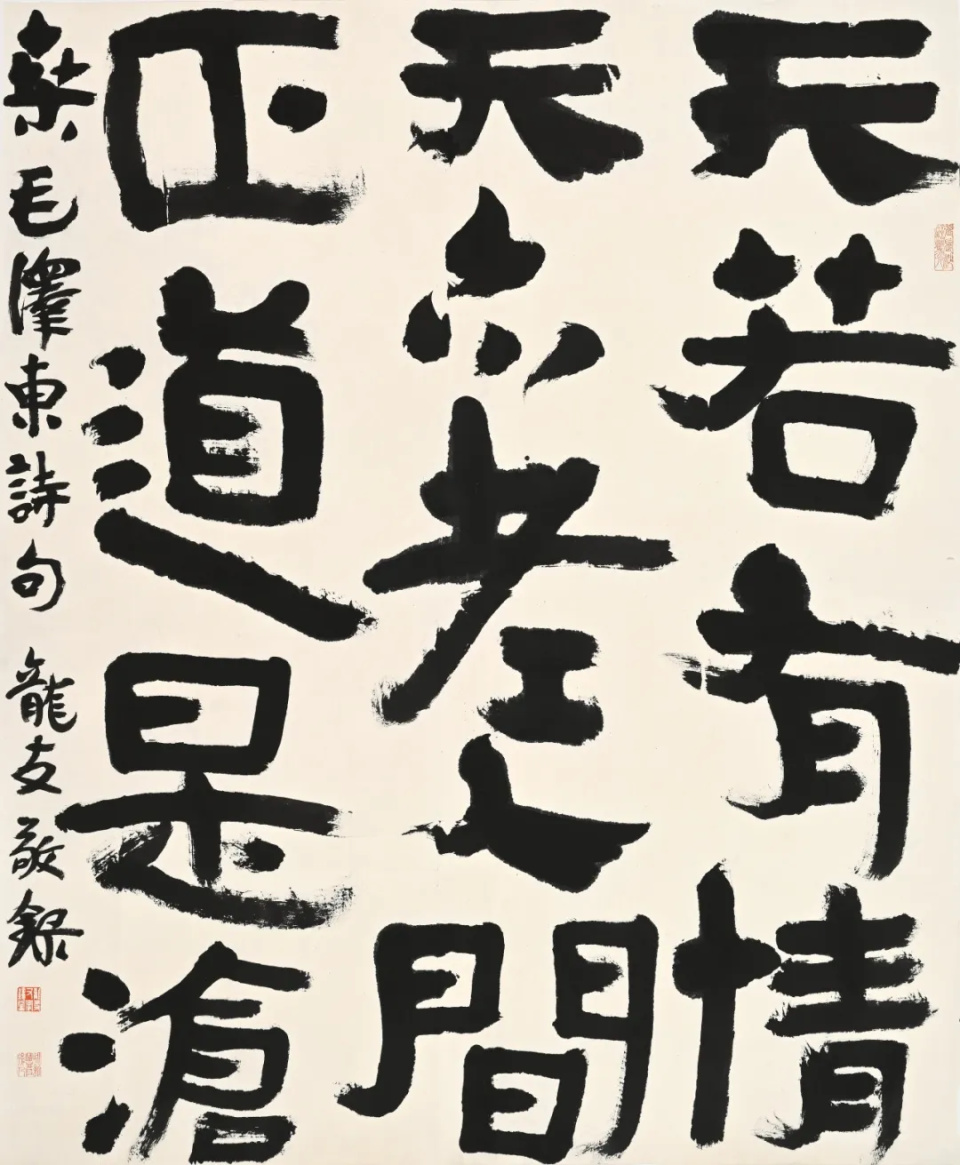 天若有情
天亦老人間
正道是滄
桑毛澤東詩句 龍友敬錄